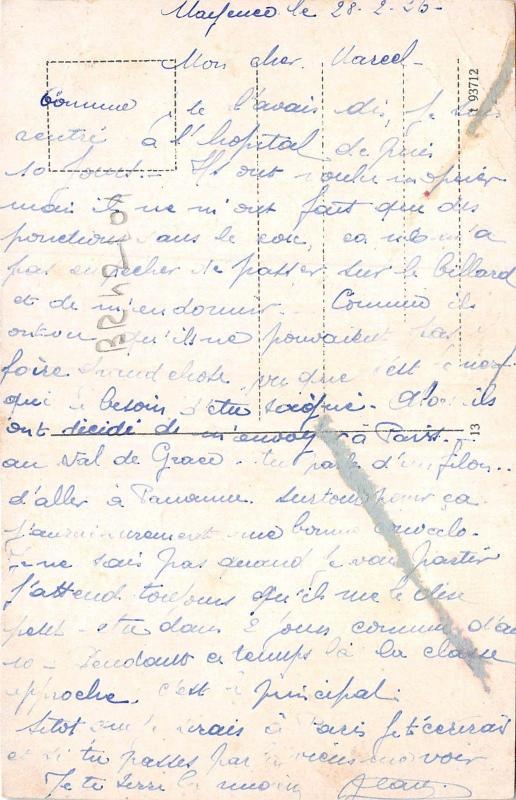 Mayence le 28-2-25-
Mon cher Marcel-
93712
Comme je l'avais dis, Je suis
rentré à l'hopital depuis
10 jours.- Ils ont voulu m'operer
mais il ne m'ont fait que des
ponctions dans le cou, ca ne m'a
pas empecher de passer sur le billard
et de m'endormir.- Comme ils
ont vu qu'ils ne pouvaient pas
faire grand chose vu que c'est
qui à besoin d'etre soigné. Alors ils
ont décidé de m'envoyer à Paris.
13
au Val de Grace.- tu parle d'un filon..
d'aller à Paname. surtout pour ça
J'aurai surement une bonne convalo.
Je ne sais pas quand je vais partir
J'attend toujours qu'ils me le dise
peut-etre dans 2 jours comme d'
10- Pendant ce temps là la classe
approche. c'est le principal
Sitot que je serais à Paris je t'écrirai
et si tu passes par là viens me voir
Je te serre la main Jean